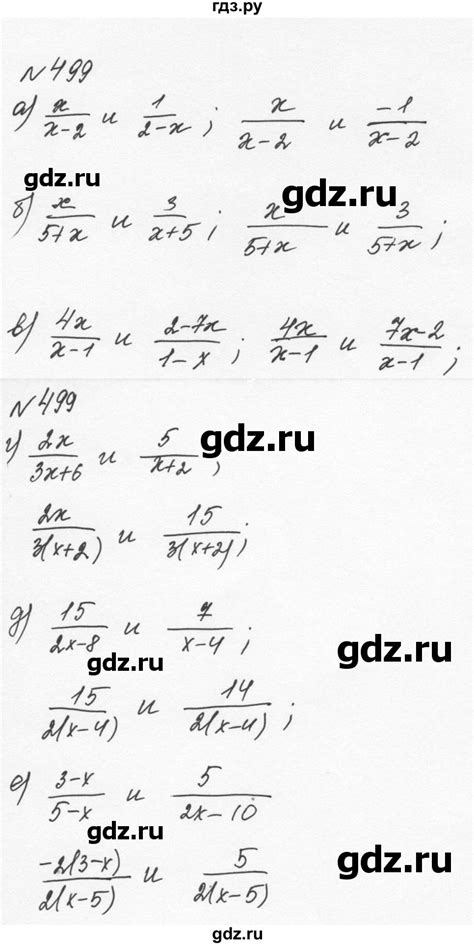 гдз.ру
№499
а) x/(x-2) и 1/(2-x); x/(x-2) и -1/(x-2)
gdz.ru
б) x/(5+x) и 3/(x+5); x/(5+x) и 3/(5+x);
в) 4x/(x-1) и (2-7x)/(1-x); 4x/(x-1) и (7x-2)/(x-1);
№499
г) 2x/(3x+6) и 5/(x+2);
gdz.ru
2x/(3(x+2)) и 15/(3(x+2));
д) 15/(2x-8) и 7/(x-4);
gdz.ru
gdz.ru
15/(2(x-4)) и 14/(2(x-4));
е) (3-x)/(5-x) и 5/(2x-10)
gdz.ru
gdz.ru
-2(3-x)/(2(x-5)) и 5/(2(x-5))
gdz.ru